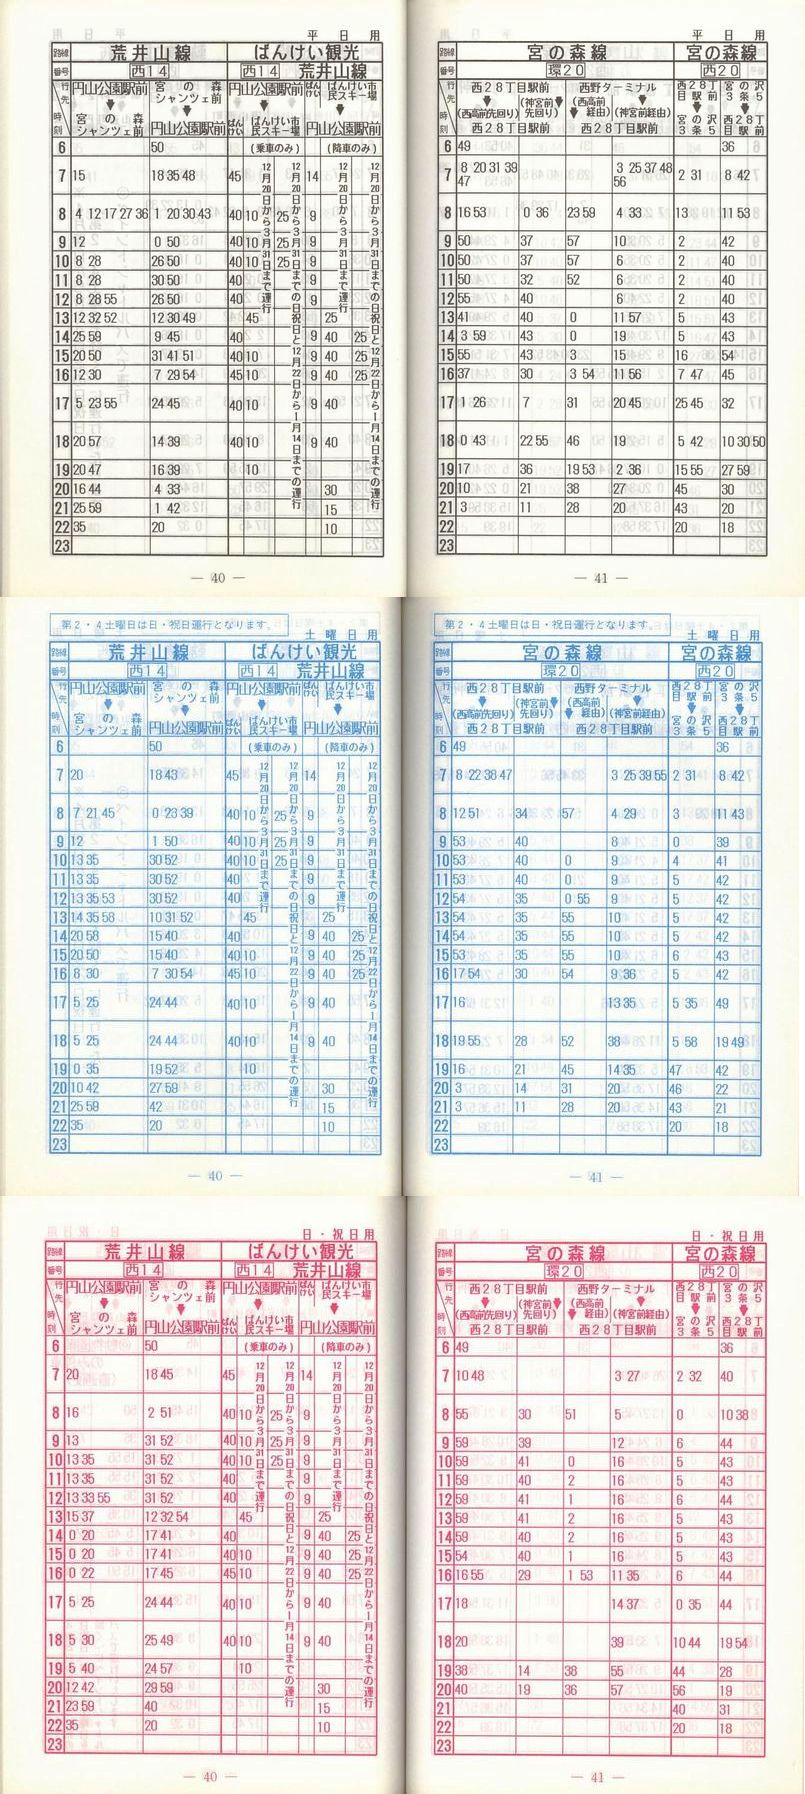 平日用
路線 荒井山線 ばんけい観光
番号 西14 西14 荒井山線
行先 円山公園駅前 宮の森シャンツェ前 円山公園駅前 ばんけい ばんけい市民スキー場
時刻 宮の森シャンツェ前 円山公園駅前 ばんけい ばんけい市民スキー場 円山公園駅前
6 50 (乗車のみ) (降車のみ)
7 15 18 35 48 45 14
8 4 12 17 27 36 1 20 30 43 40 10 25 9
9 12 0 50 40 10 25 9
10 8 28 26 50 40 10 25 9
11 8 28 30 50 40 9
12 8 28 55 26 50 40 9
13 12 32 52 12 30 49 45 25
14 25 59 9 45 40 9 40 25
15 20 50 31 41 51 40 10 9 40 25
16 12 30 7 29 54 45 10 9 40 25
17 5 23 55 24 45 40 10 9 40
18 20 57 14 39 40 10 9 40
19 20 47 16 39 10
20 16 44 4 33 30
21 25 59 1 42 15
22 35 20 10
23
12月20日から3月31日まで運行
12月20日から3月31日までの日祝日と12月22日から1月14日までの運行
12月20日から3月31日まで運行
12月20日から3月31日までの日祝日と12月22日から1月14日までの運行
— 40 —
平日用
路線 宮の森線 宮の森線
番号 環20 西20
行先 西28丁目駅前 西野ターミナル 西28丁目駅前 宮の沢3条5
(西高前先回り) (神宮前先回り) (西高前経由) (神宮前経由)
時刻 西28丁目駅前 西28丁目駅前 宮の沢3条5 西28丁目駅前
6 49 36
7 8 20 31 39 47 3 25 37 48 56 2 31 8 42
8 16 53 0 36 23 59 4 33 13 11 53
9 50 37 57 10 2 42
10 50 37 57 6 2 40
11 50 32 52 6 2 40
12 55 40 6 2 40
13 41 40 0 11 57 5 43
14 3 59 43 0 19 5 43
15 55 43 3 15 16 54
16 37 30 3 54 11 56 7 47 45
17 1 26 7 31 20 45 25 45 32
18 0 43 22 55 46 19 5 42 10 30 50
19 17 36 19 53 2 36 15 55 27 59
20 10 21 38 27 45 30
21 3 11 28 20 43 20
22 20 18
23
— 41 —
第2・4土曜日は日・祝日運行となります。
土曜日用
路線 荒井山線 ばんけい観光
番号 西14 西14 荒井山線
行先 円山公園駅前 宮の森シャンツェ前 円山公園駅前 ばんけい ばんけい市民スキー場
時刻 宮の森シャンツェ前 円山公園駅前 ばんけい ばんけい市民スキー場 円山公園駅前
6 50 (乗車のみ) (降車のみ)
7 20 18 43 45 14
8 7 21 45 0 23 39 40 10 25 9
9 12 1 50 40 10 25 9
10 13 35 30 52 40 10 25 9
11 13 35 30 52 40 9
12 13 35 53 30 52 40 9
13 14 35 58 10 31 52 45 25
14 20 58 15 40 40 9 40 25
15 20 50 15 40 40 10 9 40 25
16 8 30 7 30 54 45 10 9 40 25
17 5 25 24 44 40 10 9 40
18 5 25 24 44 40 10 9 40
19 0 35 19 52 10
20 10 42 27 59 30
21 25 59 42 15
22 35 20 10
23
12月20日から3月31日まで運行
12月20日から3月31日までの日祝日と12月22日から1月14日までの運行
12月20日から3月31日まで運行
12月20日から3月31日までの日祝日と12月22日から1月14日までの運行
— 40 —
第2・4土曜日は日・祝日運行となります。
土曜日用
路線 宮の森線 宮の森線
番号 環20 西20
行先 西28丁目駅前 西野ターミナル 西28丁目駅前 宮の沢3条5
(西高前先回り) (神宮前先回り) (西高前経由) (神宮前経由)
時刻 西28丁目駅前 西28丁目駅前 宮の沢3条5 西28丁目駅前
6 49 36
7 8 22 38 47 3 25 39 55 2 31 8 42
8 12 51 34 57 4 29 3 11 43
9 53 40 8 0 39
10 53 40 0 9 4 41
11 53 40 0 9 5 42
12 54 35 0 55 9 5 42
13 54 35 55 10 5 42
14 54 35 55 10 5 42
15 53 35 55 10 6 43
16 17 54 30 54 9 36 5 42
17 16 13 35 5 35 49
18 19 55 28 52 38 5 58 19 49
19 16 21 45 14 35 47 42
20 3 14 31 20 46 22
21 3 11 28 20 43 21
22 20 18
23
— 41 —
日・祝日用
路線 荒井山線 ばんけい観光
番号 西14 西14 荒井山線
行先 円山公園駅前 宮の森シャンツェ前 円山公園駅前 ばんけい ばんけい市民スキー場
時刻 宮の森シャンツェ前 円山公園駅前 ばんけい ばんけい市民スキー場 円山公園駅前
6 50 (乗車のみ) (降車のみ)
7 20 18 45 45 14
8 16 2 51 40 10 25 9
9 13 31 52 40 10 25 9
10 13 35 31 52 40 10 25 9
11 13 35 31 52 40 9
12 13 33 55 31 52 40 9
13 15 37 12 32 54 45 25
14 0 20 17 41 40 9 40 25
15 0 20 17 41 40 10 9 40 25
16 0 22 17 45 45 10 9 40 25
17 5 25 24 44 40 10 9 40
18 5 30 25 49 40 10 9 40
19 5 40 24 57 10
20 12 42 29 59 30
21 23 59 40 15
22 35 20 10
23
12月20日から3月31日まで運行
12月20日から3月31日までの日祝日と12月22日から1月14日までの運行
12月20日から3月31日まで運行
12月20日から3月31日までの日祝日と12月22日から1月14日までの運行
— 40 —
日・祝日用
路線 宮の森線 宮の森線
番号 環20 西20
行先 西28丁目駅前 西野ターミナル 西28丁目駅前 宮の沢3条5
(西高前先回り) (神宮前先回り) (西高前経由) (神宮前経由)
時刻 西28丁目駅前 西28丁目駅前 宮の沢3条5 西28丁目駅前
6 49 36
7 10 48 3 27 2 32 40
8 55 30 51 5 0 10 38
9 59 39 12 6 44
10 59 41 0 16 5 43
11 59 40 2 16 5 43
12 59 41 1 16 6 44
13 59 41 2 16 5 43
14 59 40 2 16 5 43
15 54 40 1 16 5 43
16 16 55 29 1 53 11 35 6 44
17 18 14 37 0 35 44
18 20 39 10 44 19 54
19 38 14 38 55 44 28
20 40 19 36 57 56 19
21 40 31
22 20 18
23
— 41 —